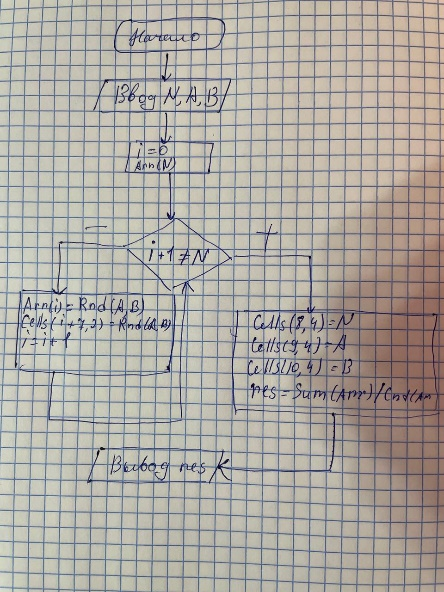 Начало
Ввод N, A, B
i=0
Arr(N)
i+1≠N
−
+
Arr(i)=Rnd(A,B)
Cells(i+7,2)=Rnd(A,B)
i=i+1
Cells(8,4)=N
Cells(9,4)=A
Cells(10,4)=B
res=Sum(Arr)/Cnd(Arr
Вывод res